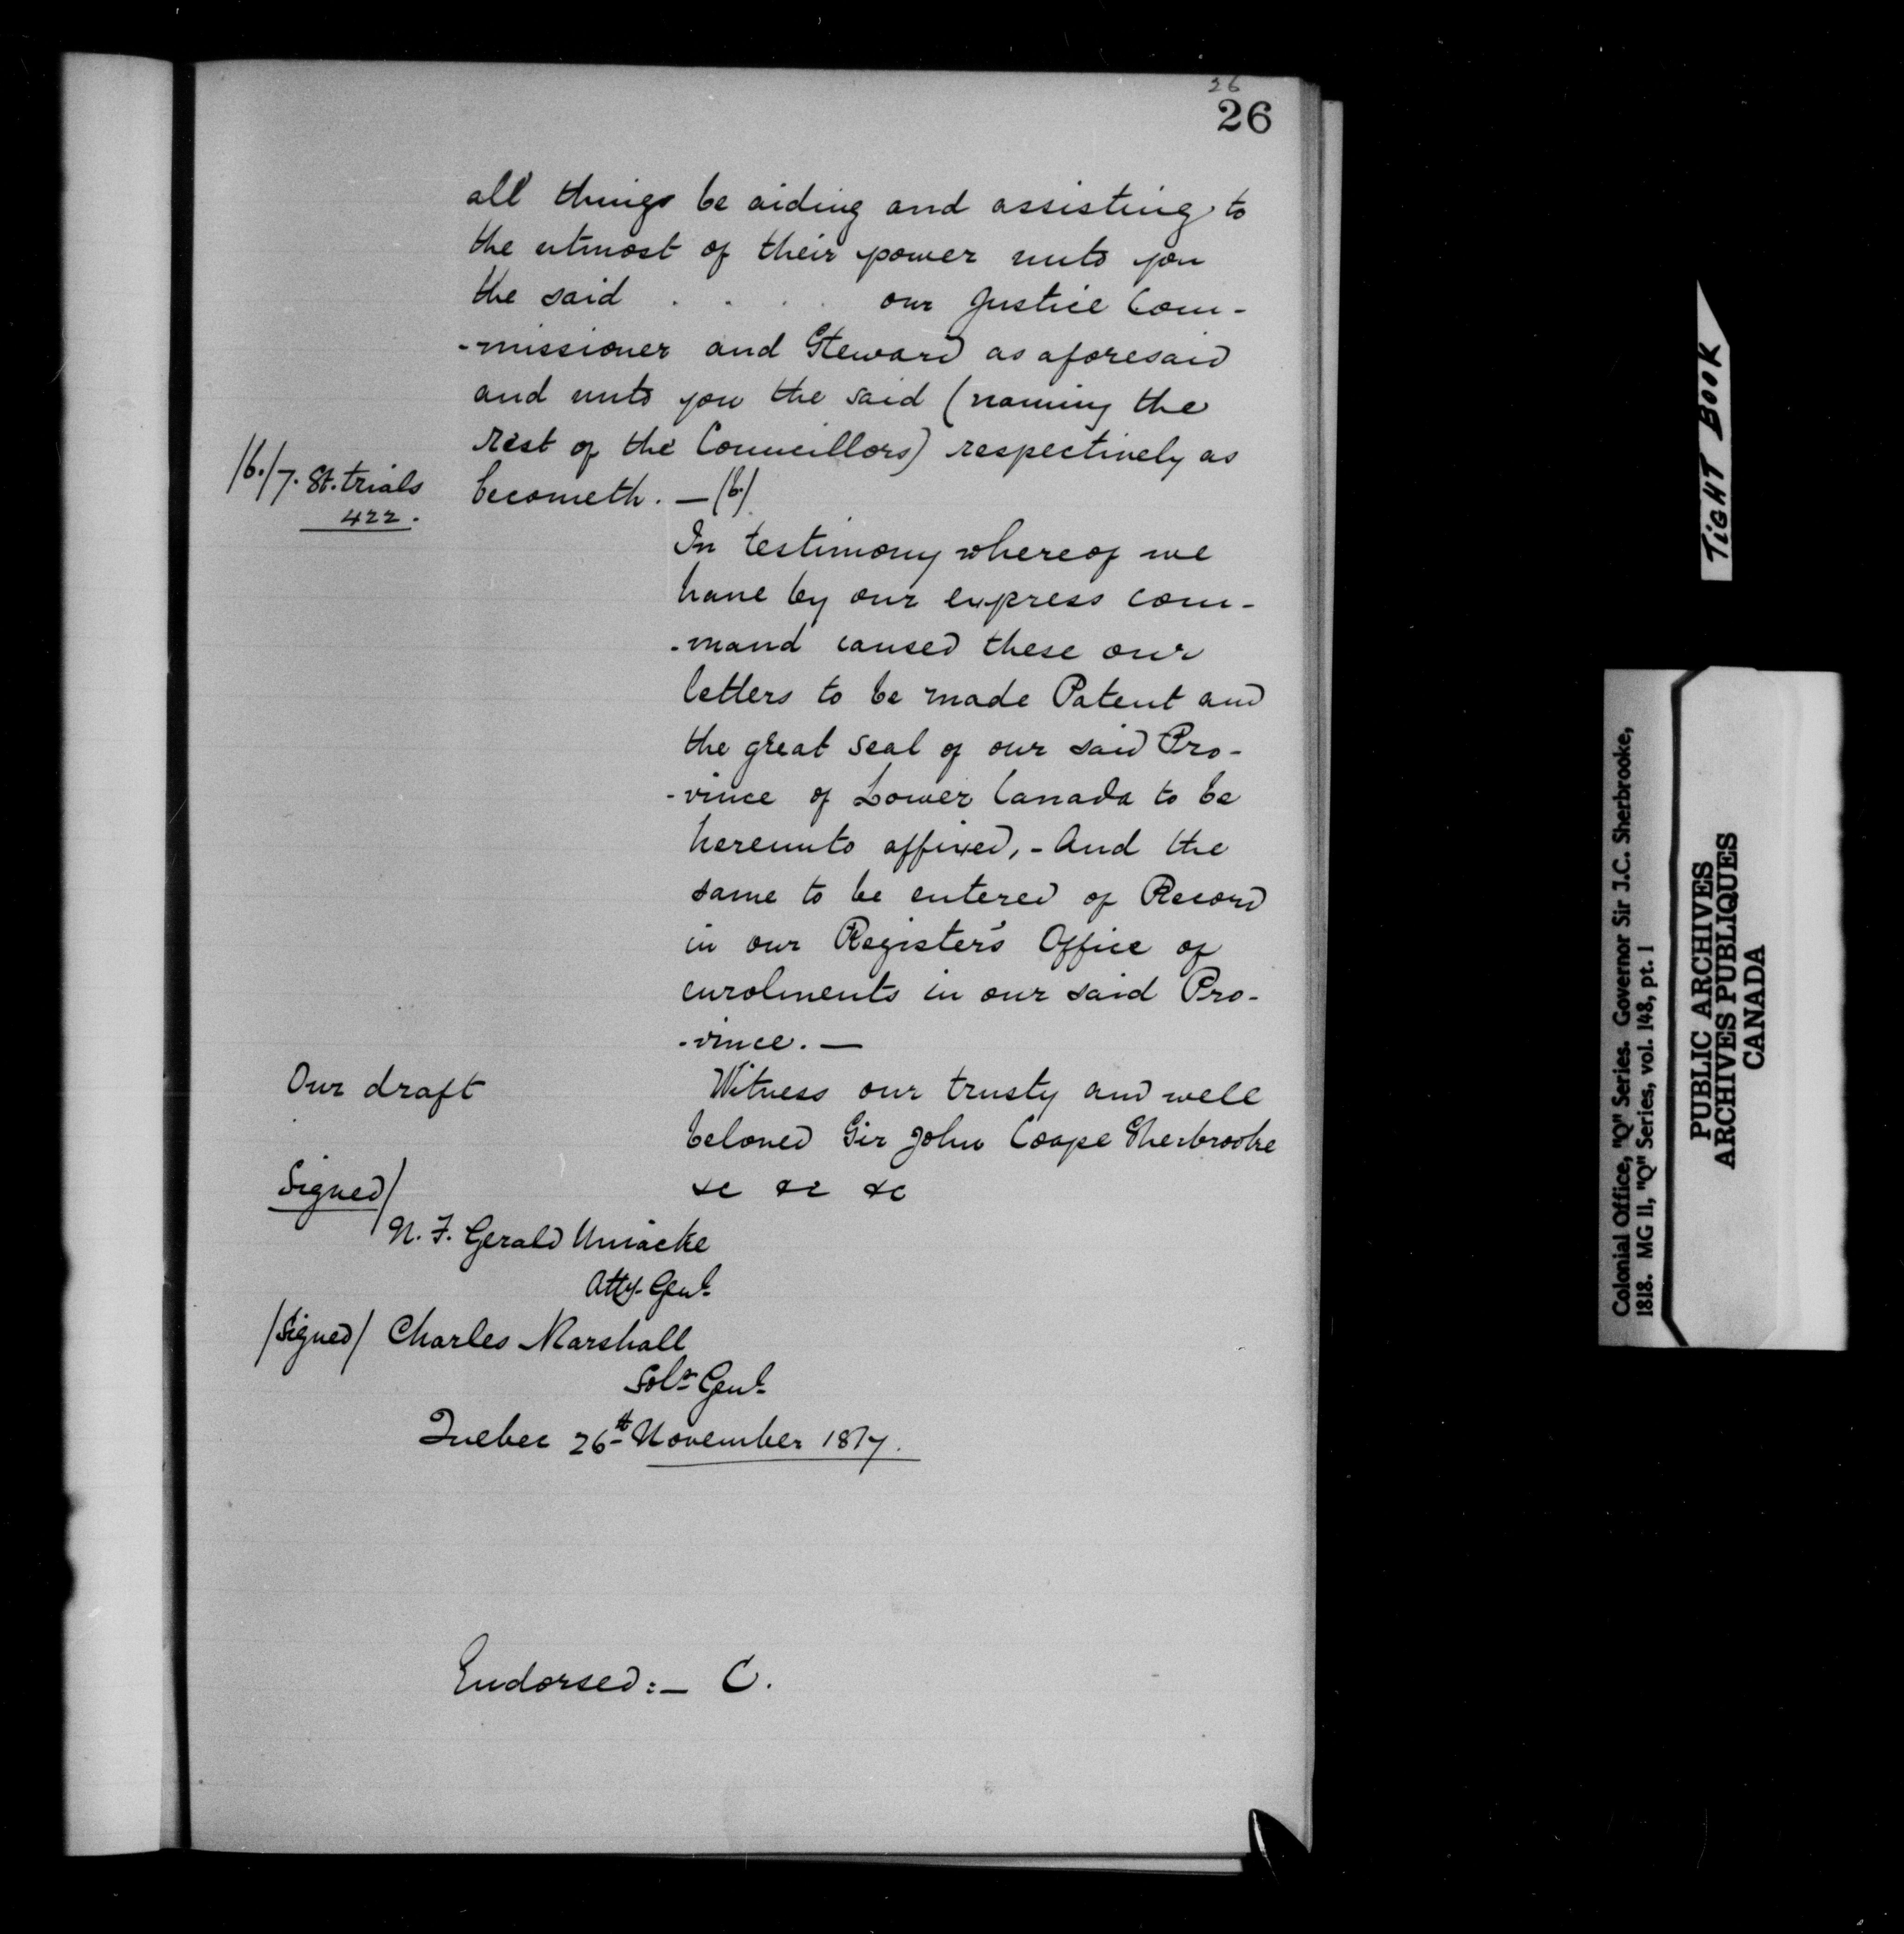 26
26
all things be aiding and assisting to
the utmost of their power unto you
the said . . . . our Justice Com-
-missioner and Steward as aforesaid
and unto you the said (naming the
rest of the Councillors) respectively as
becometh. — (b)
/b./7. St. trials
422.
In testimony whereof we
have by our express com-
-mand caused these our
letters to be made Patent and
the great seal of our said Pro-
-vince of Lower Canada to be
hereunto affixed, - And the
same to be entered of Record
in our Register's Office of
enrolments in our said Pro-
-vince. —
Our draft
Witness our trusty and well
beloved Sir John Coape Sherbrooke
&c &c &c
Signed/
N. F. Gerald Uniacke
Atty. Genl.
/Signed/ Charles Marshall
Solr. Genl.
Quebec 26th November 1817.
Endorsed:- C.
TIGHT BOOK
Colonial Office, "Q" Series. Governor Sir J.C. Sherbrooke,
1818. MG 11, "Q" Series, vol. 148, pt. 1
PUBLIC ARCHIVES
ARCHIVES PUBLIQUES
CANADA